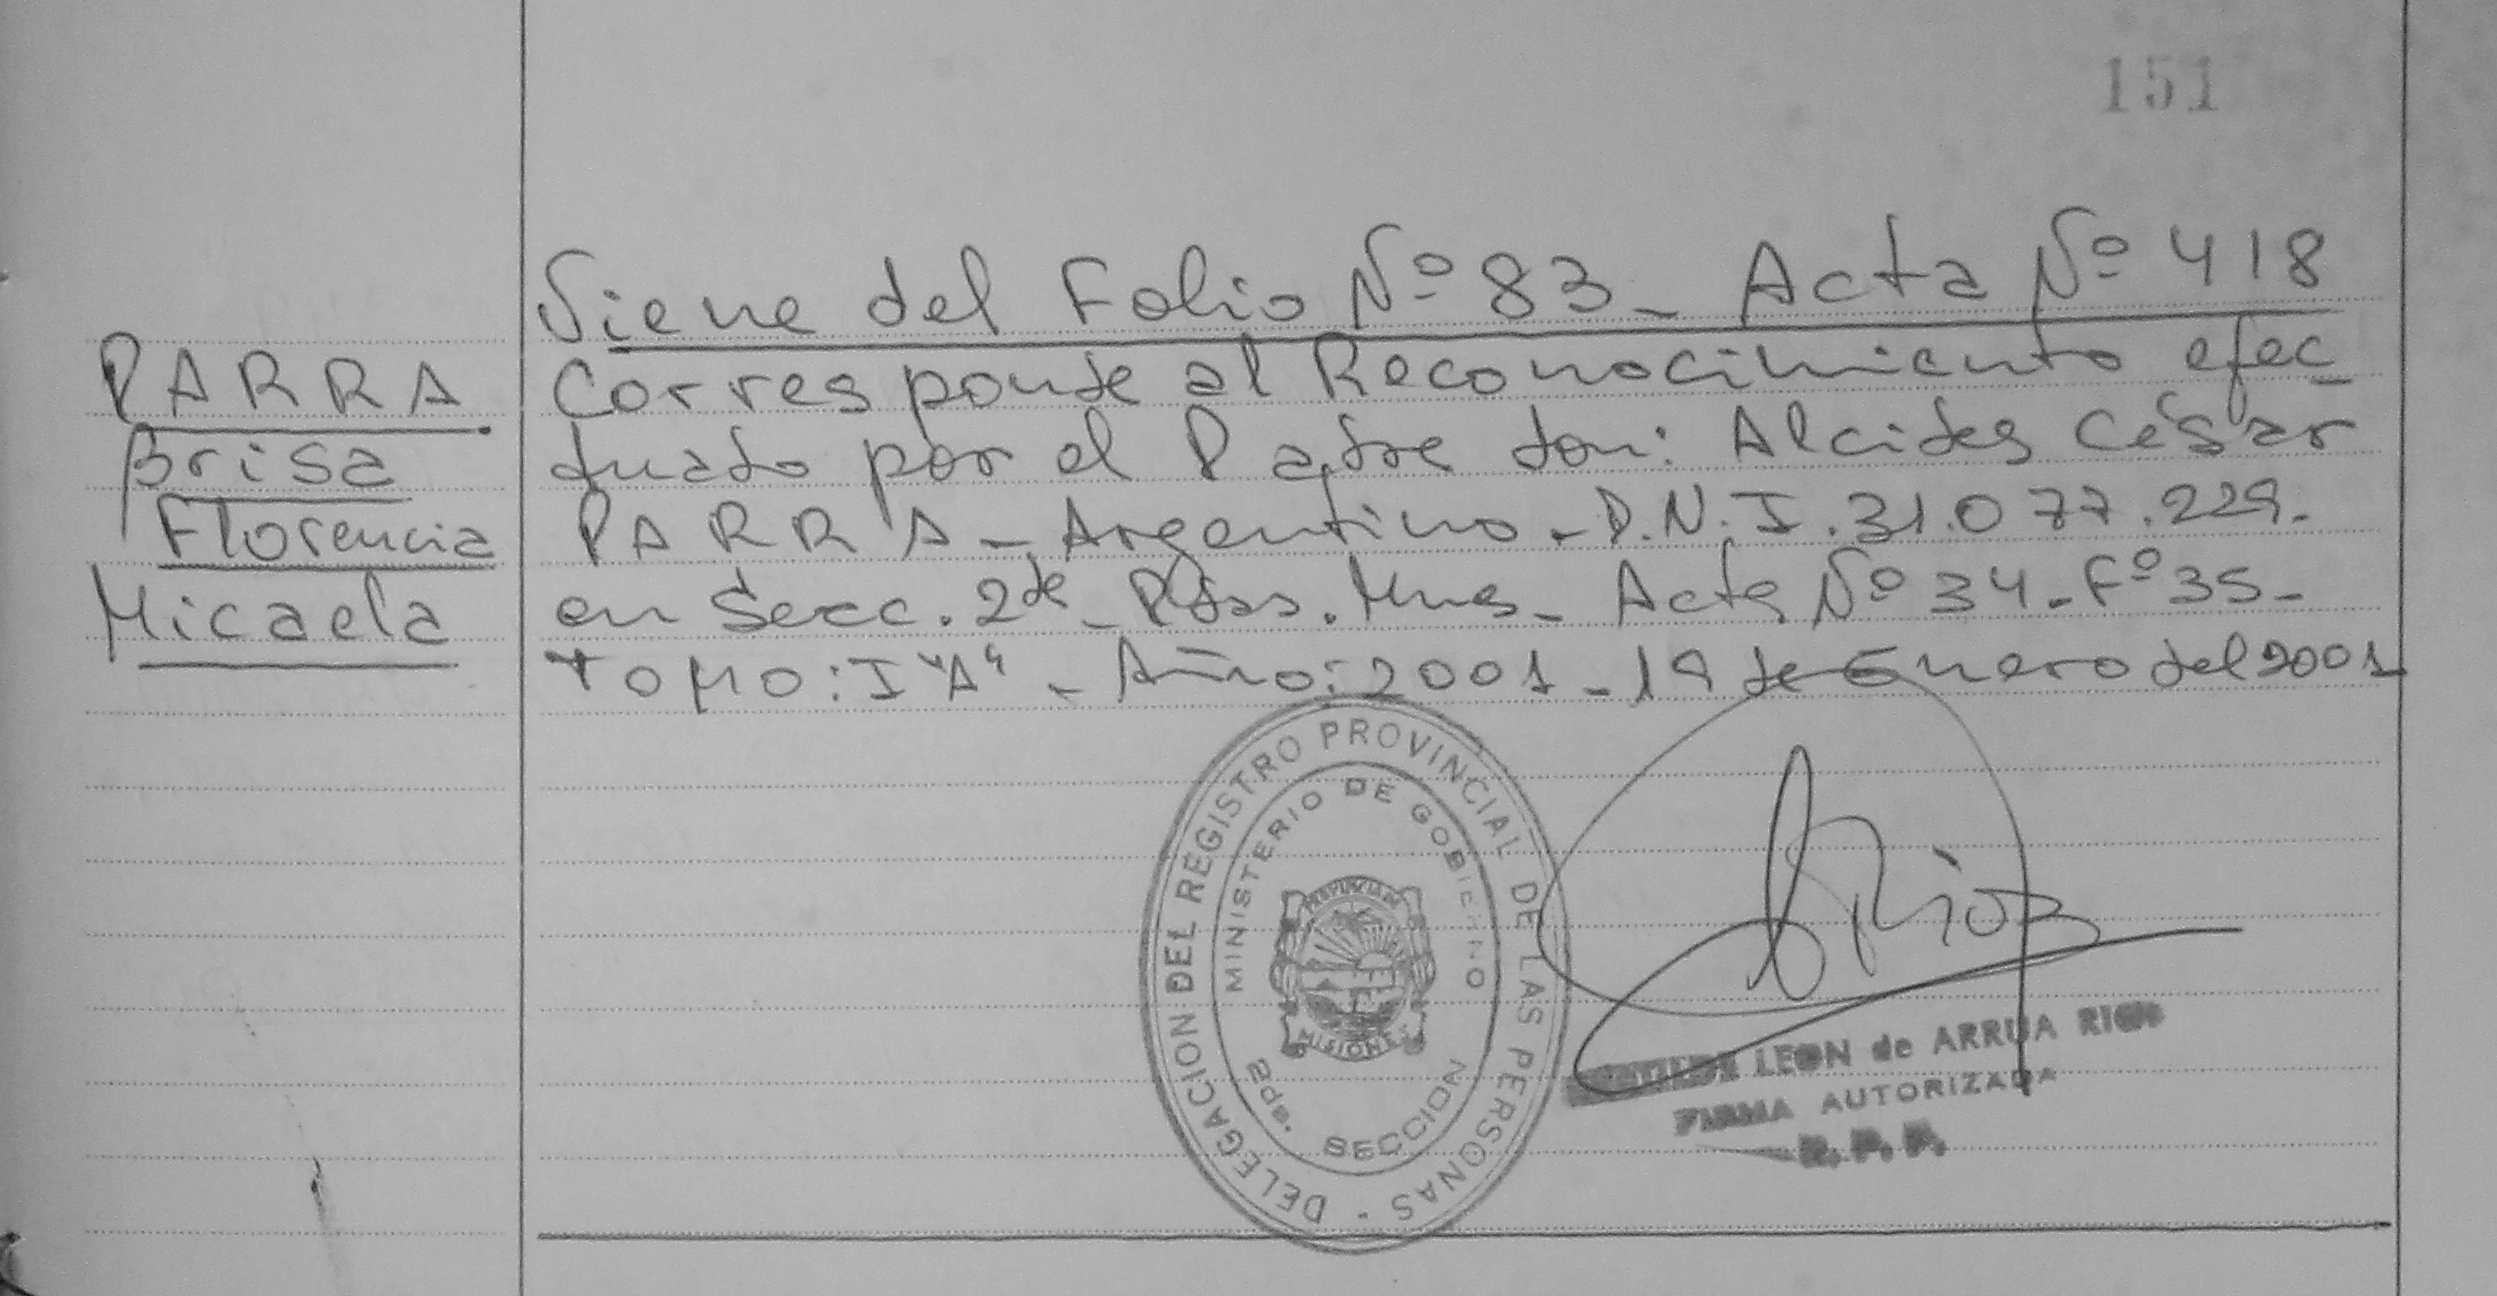 151
Viene del Folio Nº 83 - Acta Nº 418
PARRA
Brisa
Florencia
Micaela
Corresponde al Reconocimiento efec
tuado por el Padre don: Alcides César
PARRA - Argentino - D.N.I. 31.077.229.
en Secc. 2da - Pdas. Mnes - Acta Nº 34 - Fº 35 -
TOMO: I "A" - Año: 2001 - 19 de Enero del 2001
DELEGACION DEL REGISTRO PROVINCIAL DE LAS PERSONAS
MINISTERIO DE GOBIERNO
PROVINCIA DE
MISIONES
2da. SECCION
Rios
LEON de ARRUA RIOS
FIRMA AUTORIZADA
R. P. P.